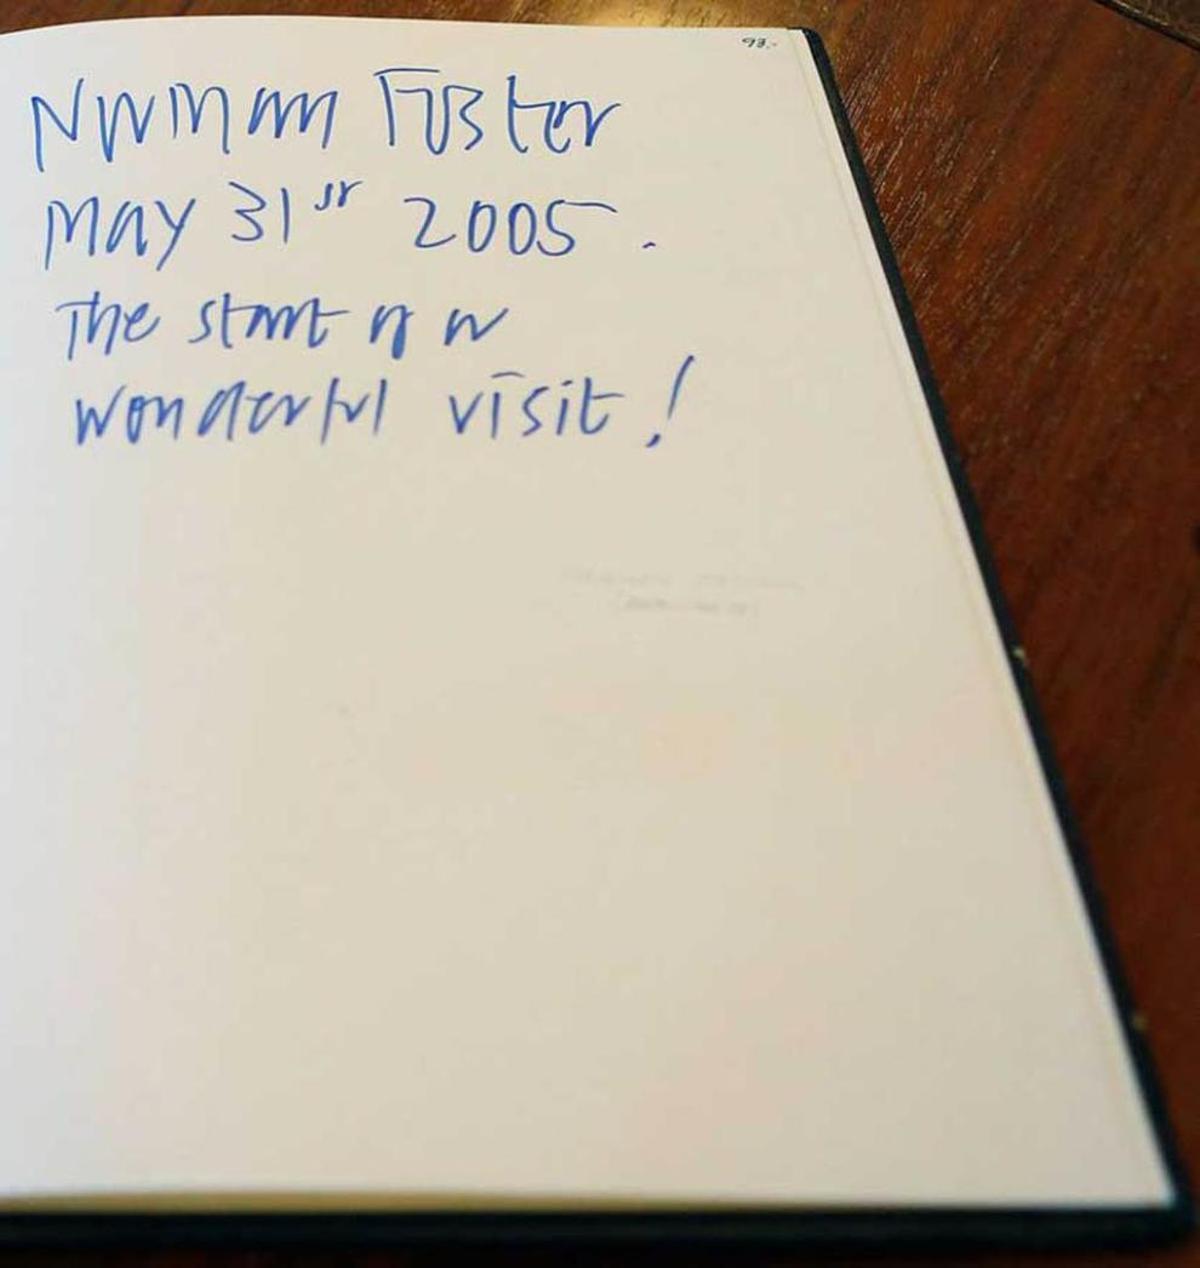 93.-
Norman Foster
May 31st 2005.
The start of a
wonderful visit!